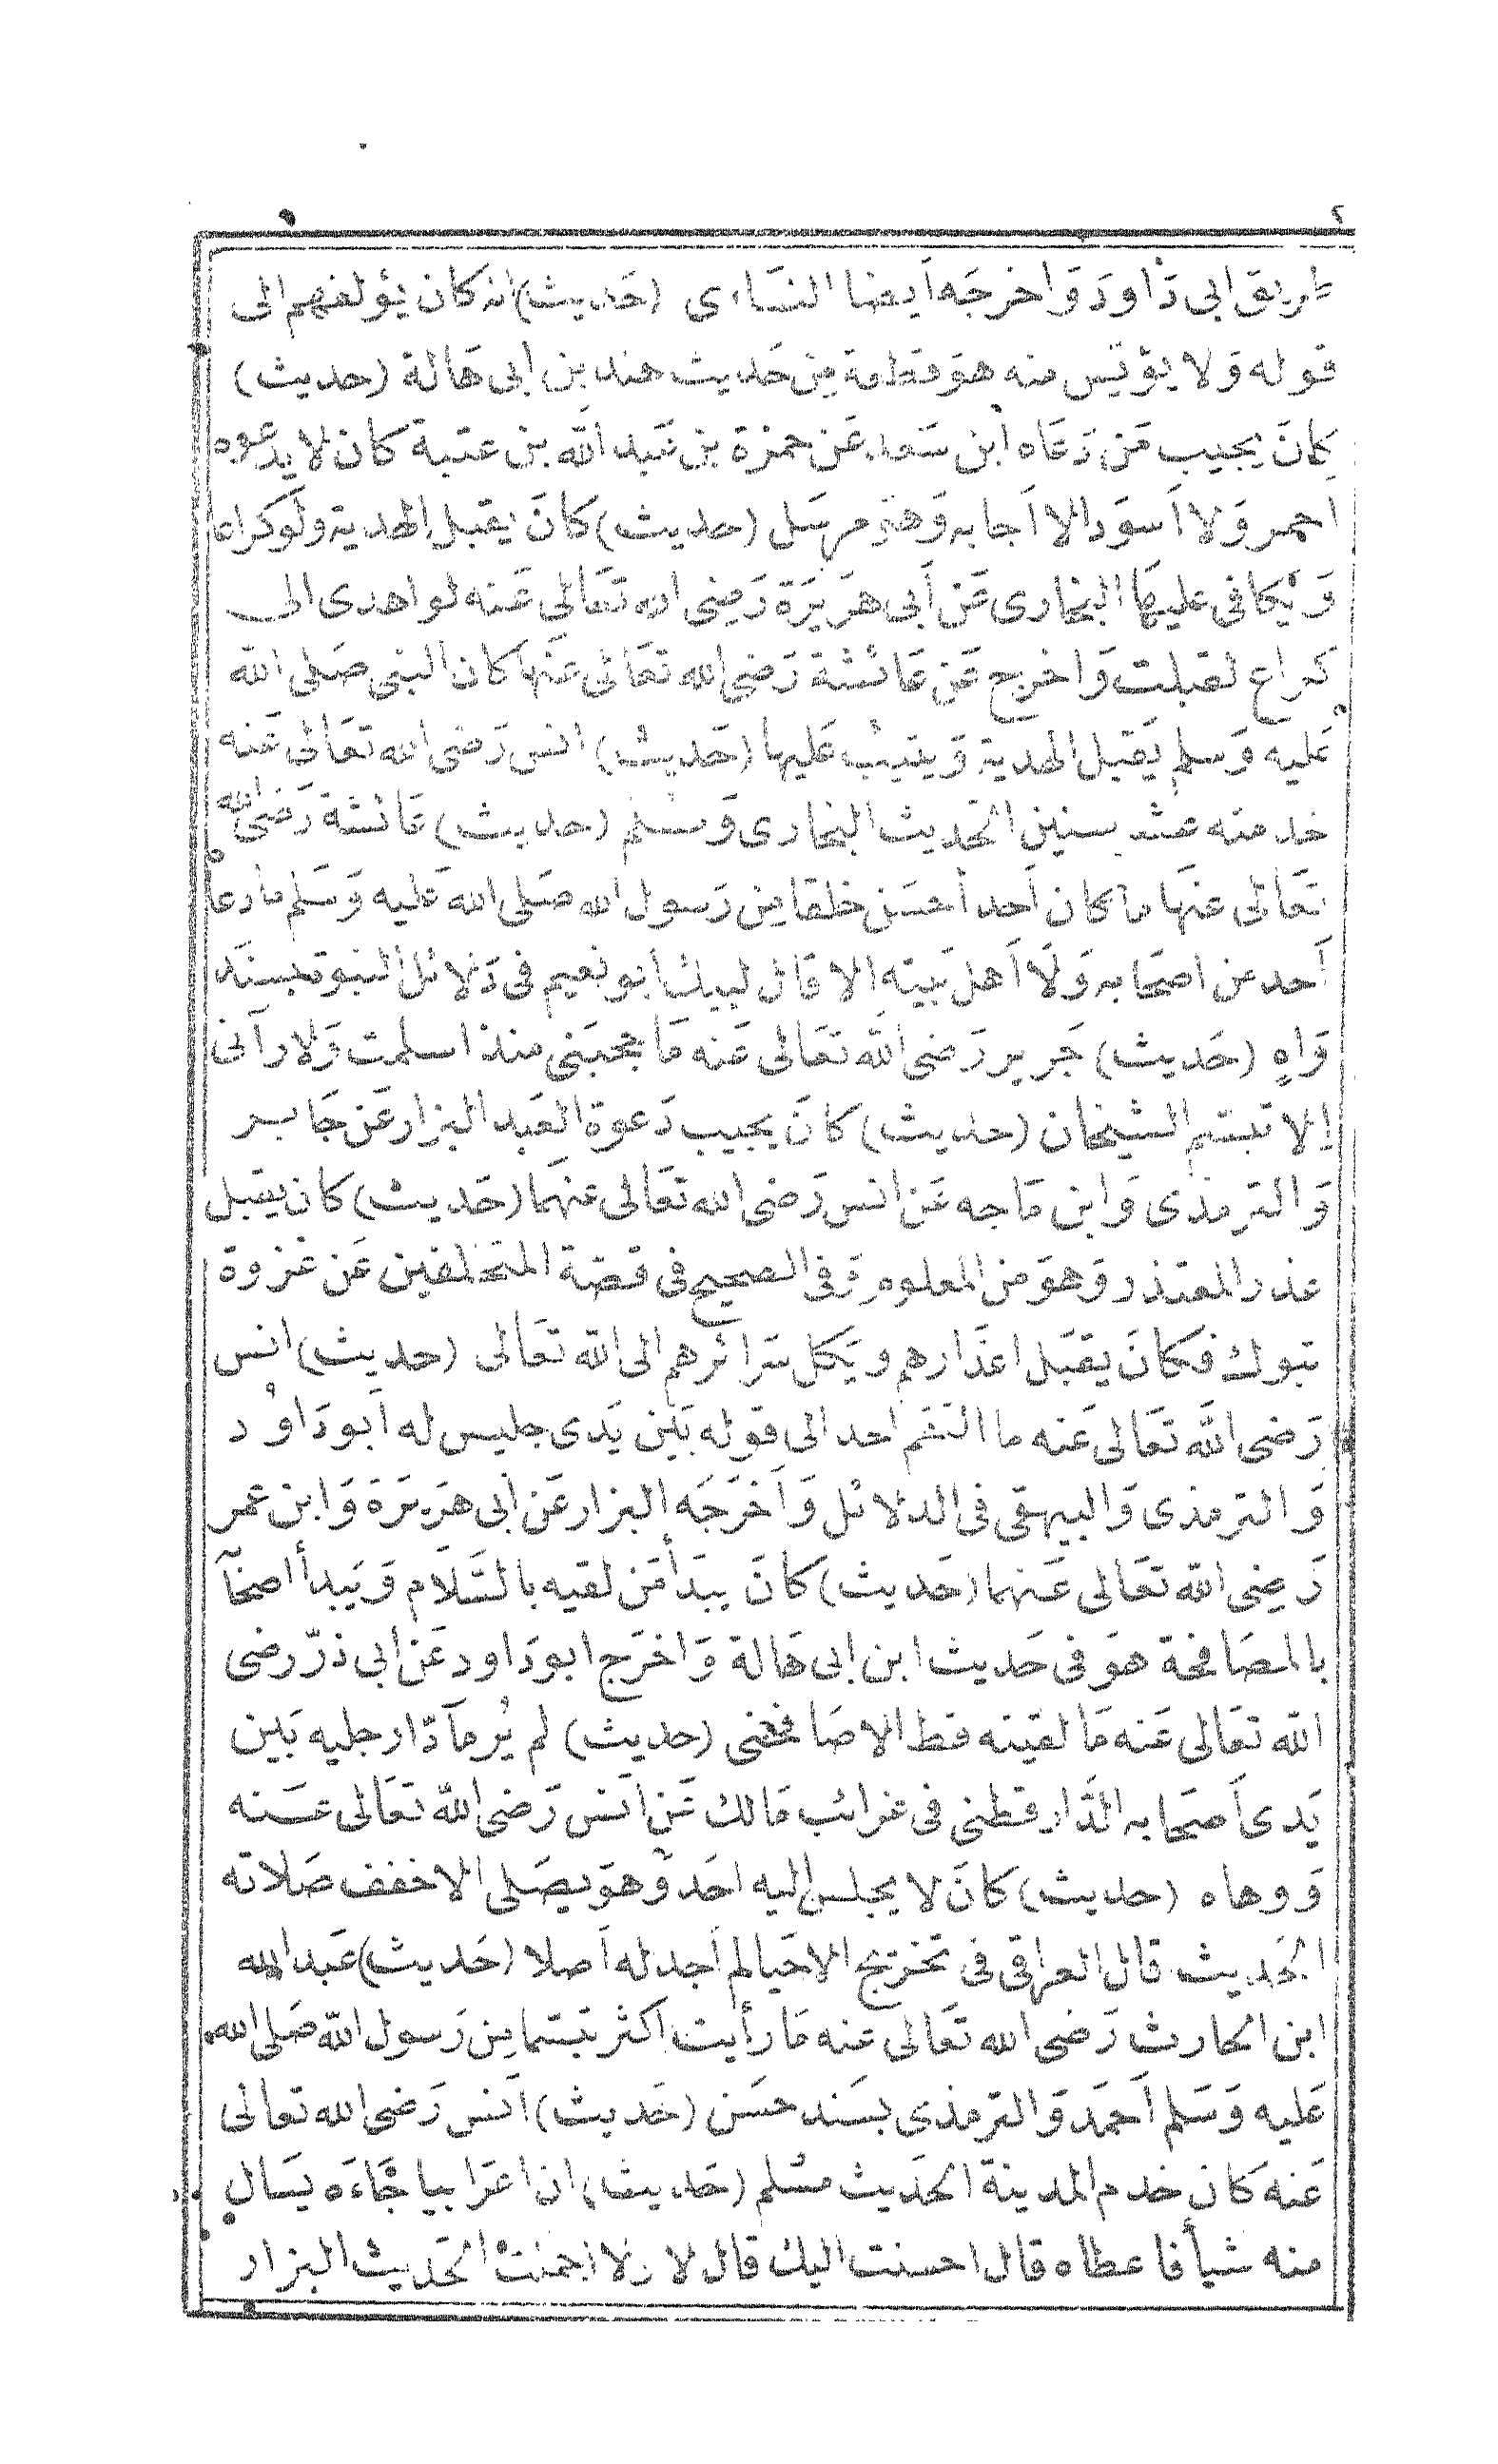 طريق ابى دَاودَ وَاخرجَه اَيضا النسَاءى (حَديث) انه كان يؤلفهم الى
قوله وَلا يؤيس منه هوَ قطعة مِن حَديث هند بن أبى هَالة (حديث)
كانَ يجيب مَن دَعَاه ابن سَعد عَن حمزة بن عَبد الله بن عتبة كان لا يدعوه
احمر وَلا اَسوَد الا اَجابه وَهوَ مرسَل (حديث) كانَ يقبل الهدية ولَو كراعا
وَيكافى عليهَا البخارى عَن أبى هرَيرَة رَضِى الله تعَالى عَنه لو اهدى الى
كراع لقبلت وَاخرج عَن عَائشة رَضى الله تعَالى عنهَا كان النبى صَلى الله
عَليه وَسلم يَقبل الهدية وَيثيب عَليها (حَديث) انس رَضى الله تعَالى عَنه
خدمته عشر سنين الحَديث البخارى وَمسلم (حديث) عَائشة رَضى الله
تعَالى عنهَا ما كان اَحد أحسَن خلقا مِن رَسول الله صَلى الله عَليه وَسَلم ما دعا
اَحد من اصحَابه وَلَا اَهل بَيته الا قال لبيك أبو نعيم فى دَلائل النبوة بسنَد
وَاهٍ (حَديث) جَرير رَضى الله تعَالى عَنه مَا حجبَنى منذ اسلمت وَلا راَنى
إلا تبسَم الشيخان (حديث) كانَ يجيب دَعوة العَبد البزار عَن جَابر
وَالترمذى وَابن مَاجه عَن انس رَضى الله تعَالى عنهَما (حَديث) كان يقبل
عذر المعتذر وَهوَ من المعلوم وَفى الصحيح فى قصَة المتخلفين عَن غزوة
تبوك فكانَ يقبَل اعذَارهم ويَكل سَرائرهم الى الله تعَالى (حديث) انس
رَضى الله تعَالى عَنه ما التقم احد الى قوله بَين يَدى جليس له اَبو دَاوُد
وَالترمذى وَالبيهقى فى الدلائل وَاَخرَجَه البزار عَن اَبى هرَيرَة وَابن عمر
رَضِى الله تعَالى عَنهما (حَديث) كانَ يبدَأ مَن لقيه بالسَّلَام وَيَبدأ اصحآ
بالمصَافحة هوَ فى حَديث ابن ابى هَالة وَاخرَج ابو دَاود عَن أبى ذرّ رضى
الله تعَالى عَنه مَا لقيته قط الا صَافحنى (حديث) لم يُر مآدّا رجليه بَين
يَدى اَصحَابه الدَّارقطنى فى غرائب مَالك عَن اَنس رَضى اللّه تعَالى عَنه
وَوهاه (حديث) كانَ لا يجلس اليه احَد وَهوَ يصَلى الا خفف صَلاته
الحَديث قال العراقى فى تخريج الاحيَا لم أجد له اَصلا (حَديث) عَبد الله
ابن الحارث رَضى الله تعَالى عنه مَا رأيت اكثر تبسّما مِن رَسول اللّه صَلى الله
عَليه وَسَلم اَحمَد وَالترمذى بسَند حسَن (حَديث) اَنس رَضى الله تعالى
عَنه كان خدم المدينة الحَديث مسْلم (حَديث) ان اعرَابيا جَاءَه يسَال
منه شيأ فاعطاه قال احسنت اليك قال لا وَلا اجملت الحَديث البزار